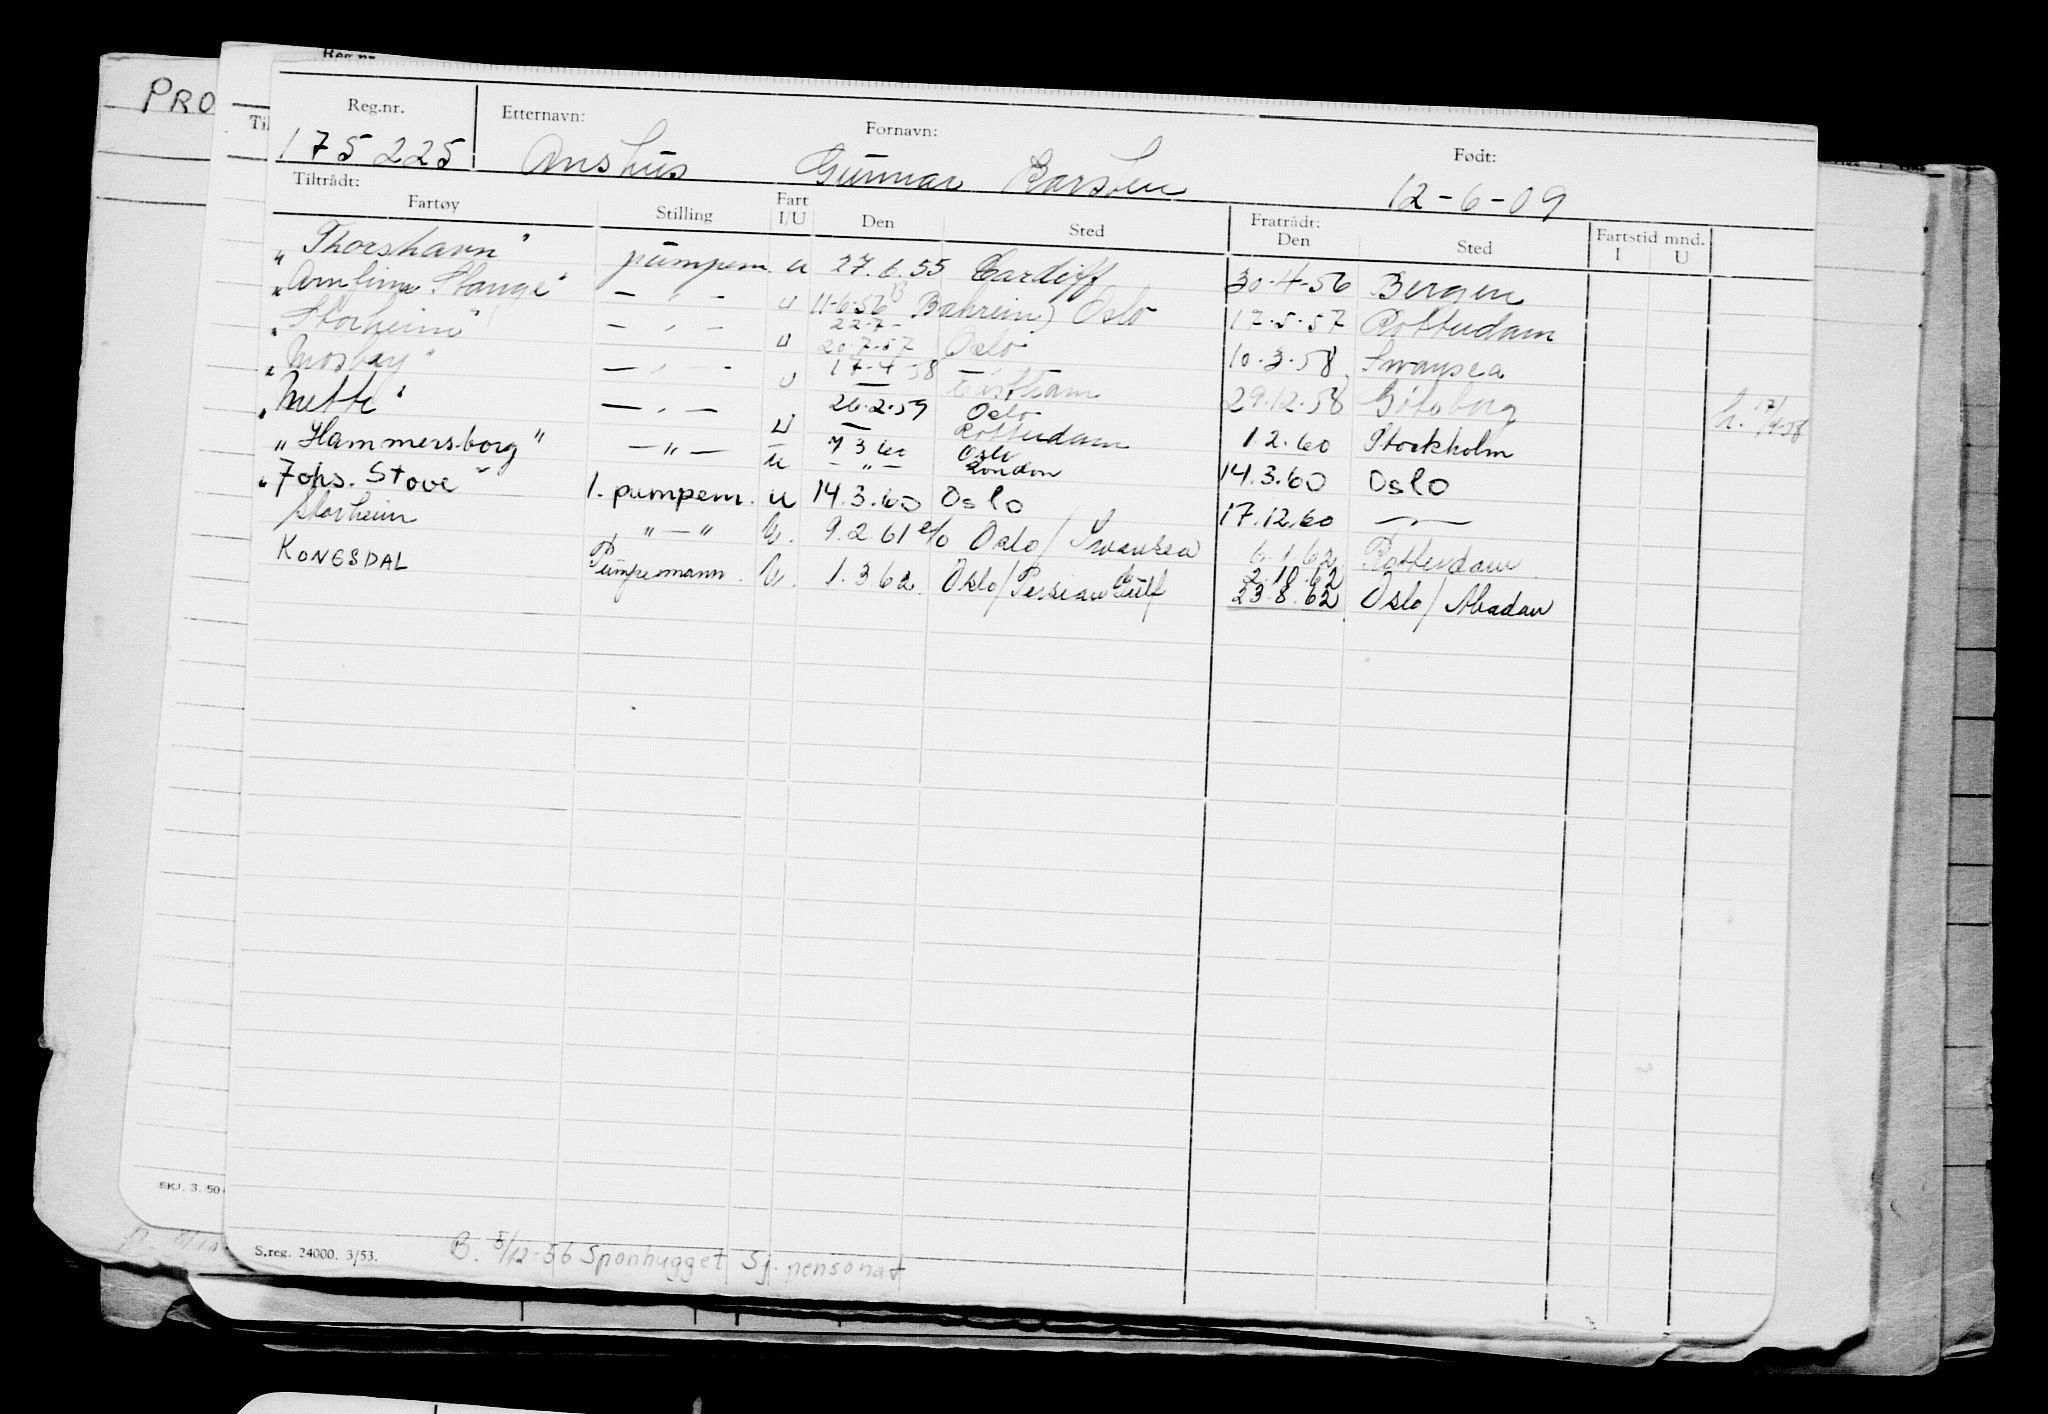 Reg.nr.
PRO
Reg.nr. Etternavn: Fornavn: Født:
175225 Anshus Gunnar Karsten 12-6-09
Tiltrådt: Fratrådt:
Fartøy Stilling Fart I/U Den Sted Den Sted Fartstid mnd. I U
"Thorshavn" pumpem. u 27.6.55 Cardiff 30-4-56 Bergen
"Arnfinn Stange" — " — u 11-6-56 Bahrein) Oslo 17-5-57 Rotterdam
22-7-
"Storheim" — " — u 20-7-57 Oslo 10-3-58 Swansea
"Mosbay" — " — u 17-4-58 Eastham 29.12.58 Göteborg h. 17/4-58
"Mette" — " — u 26.2.59 Oslo Rotterdam 1 2.60 Stockholm
"Hammersborg" — " — u 7 3 60 Oslo London 14.3.60 Oslo
"Johs. Stove" 1. pumpem. u 14.3.60 Oslo 17.12.60 — " —
Storheim " — " U. 9.2.61 e/o Oslo/Swansea 6.1.62 Rotterdam
KONGSDAL Pumpemann U. 1.3.62. Oslo/Persian Gulf 2.10.62
23.8.62 Oslo/Abadan
SKJ. 3. 50
S.reg. 24000. 3/53. B. 5/12-56 Sponhugget Sj. pensonat